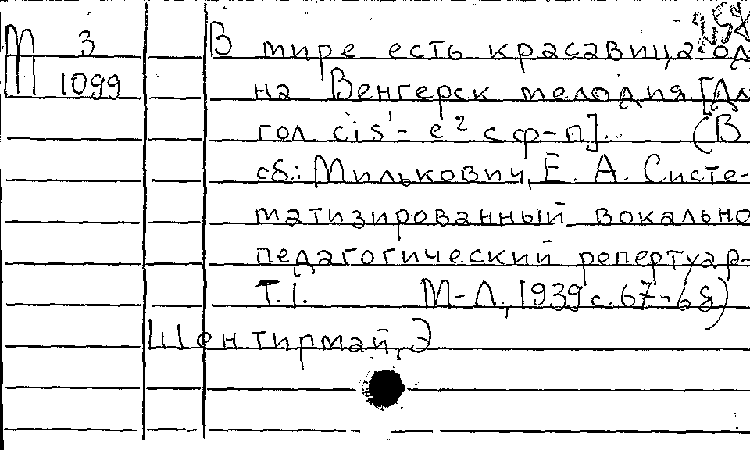 М 3 1099
В мире есть красавица од
на Венгерск мелодия [Дл
гол cis'-e² с ф-п]. (В
сб.: Милькович, Е. А. Систе-
матизированный вокально
педагогический репертуар-
Т.I. М-Л., 1939 с. 67-68)
Шентирмай, Э